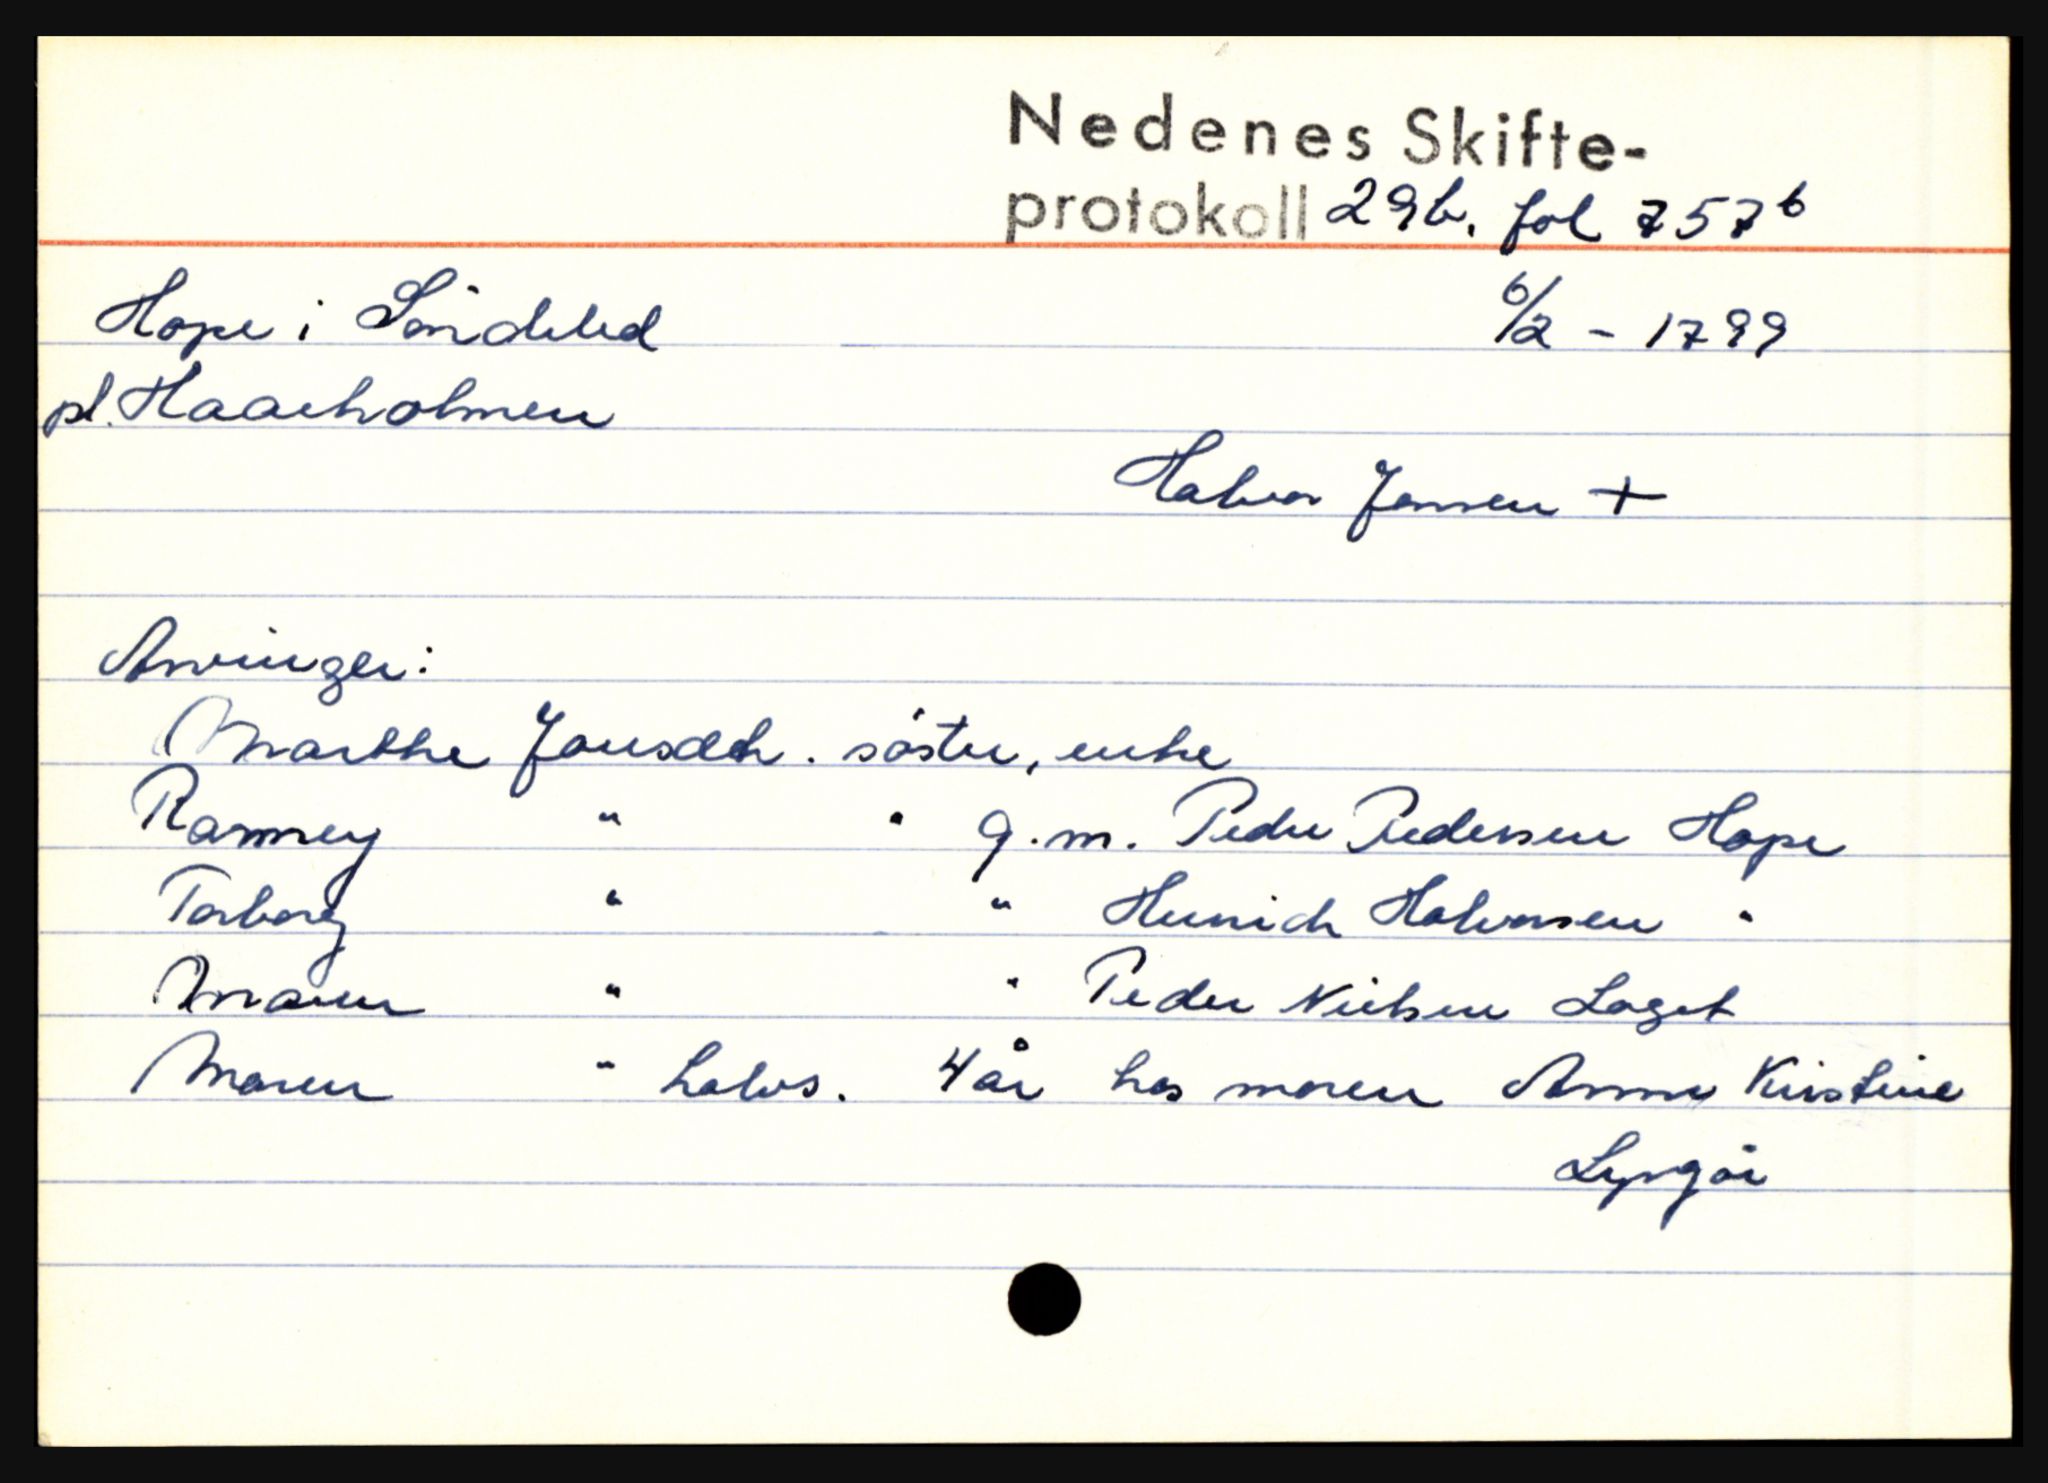 Nedenes Skifte-
protokoll 29b. fol 757b
Hope i Söndeled 6/2 - 1799
pl. Haaeholmen
Halvor Jensen +
Arvinger:
Marthe Jensdtr. söster, enke
Ramney " " g.m. Peder Pedersen Hope
Torborg " " Henrich Halvorsen "
Maren " " Peder Nielsen Laget
Maren " halvs. 4 år hos moren Anne Kirstine
Lyngör